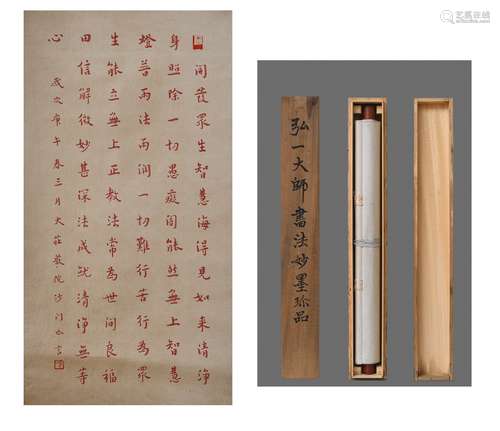 開發眾生智慧海得見如來清淨
身照除一切愚癡闇能然無上智慧
燈普雨法雨潤一切難行苦行為眾
生能立無上正教法常為世間良福
田信解微妙甚深法成就清淨無等
心
歲次庚午春三月大莊嚴院沙門
弘一大師書法妙墨珍品
艺狐在线